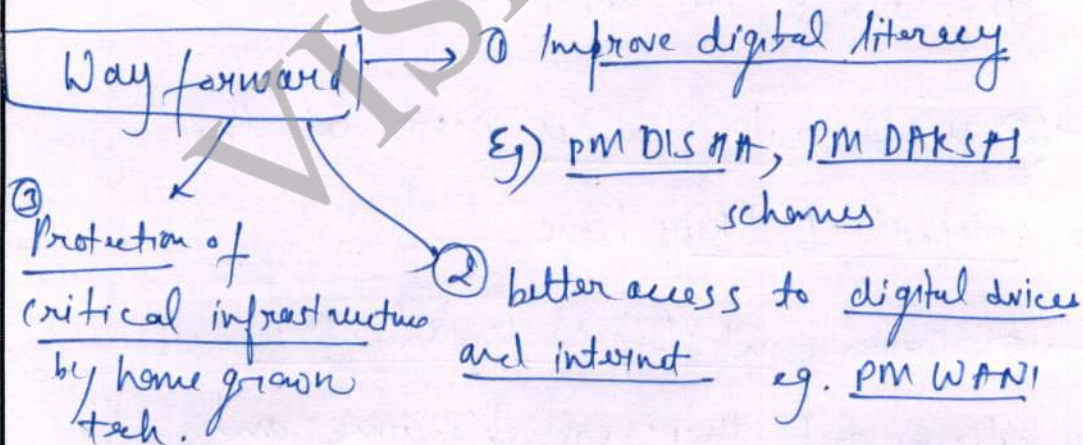 Way forward → ① Improve digital literacy
Eg) PM DISHA, PM DAKSH
schemes
② better access to digital devices
and internet eg. PM WANI
③
Protection of
critical infrastructure
by home grown
tech.
VIS